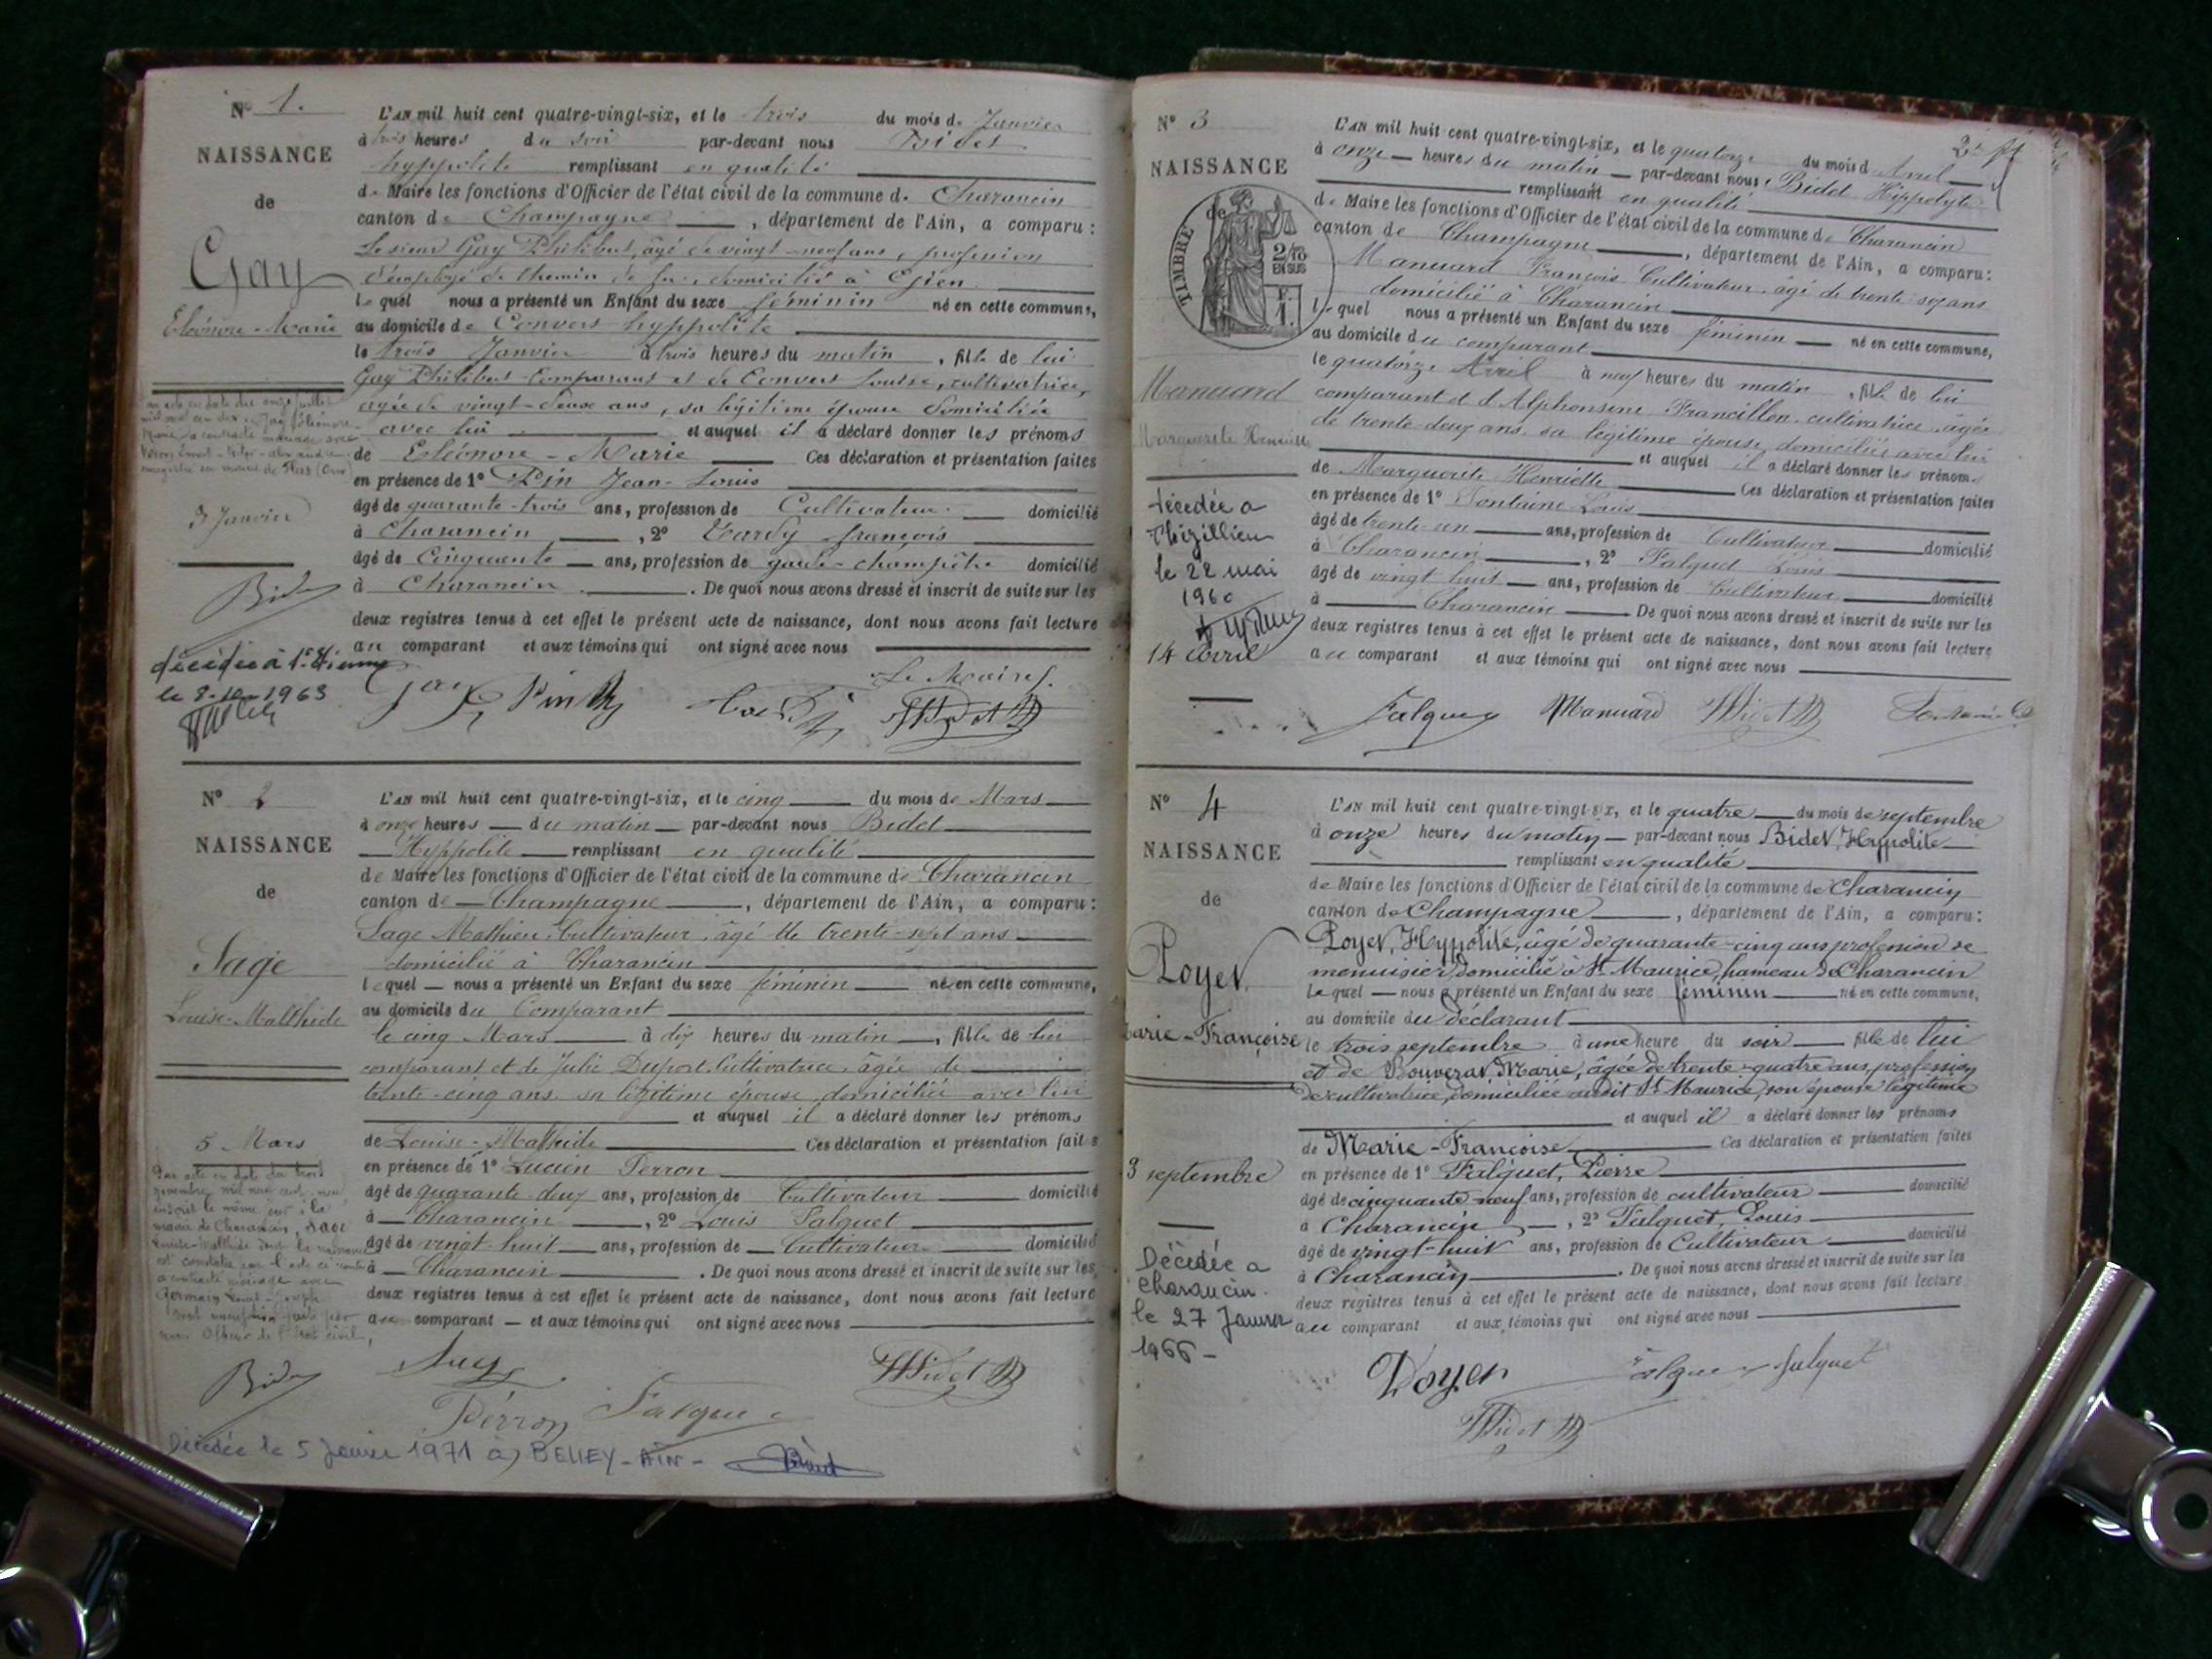 N° 1.
NAISSANCE
de
Gay
Eléonore-Marie
3 Janvier
décédée à
le 8-10-1963
L'AN mil huit cent quatre-vingt-six, et le trois du mois de Janvier
à trois heures du soir par-devant nous Bidet
hyppolite remplissant en qualité
de Maire les fonctions d'Officier de l'état civil de la commune de Charancin
canton de Champagne, département de l'Ain, a comparu:
Le sieur Gay Philibert, âgé de vingt-neuf ans, profession
d'employé de chemin de fer, domicilié à Gien
Lequel nous a présenté un Enfant du sexe féminin né en cette commune,
au domicile de Convert hyppolite
le trois Janvier à trois heures du matin, fille de lui
Gay Philibert comparant et de Convert Louise, cultivatrice,
agée de vingt-deux ans, sa légitime épouse domiciliée
avec lui et auquel il a déclaré donner les prénoms
de Eléonore-Marie Ces déclaration et présentation faites
en présence de 1° Pin Jean-Louis
âgé de quarante-trois ans, profession de Cultivateur domicilié
à Charancin, 2° Tardy françois
âgé de Cinquante ans, profession de garde-champêtre domicilié
à Charancin. De quoi nous avons dressé et inscrit de suite sur les
deux registres tenus à cet effet le présent acte de naissance, dont nous avons fait lecture
au comparant et aux témoins qui ont signé avec nous
Le Maire
Gay Pin
N° 2
NAISSANCE
de
Sage
Louise-Malthide
5 Mars
Par acte en date du trois
L'AN mil huit cent quatre-vingt-six, et le cinq du mois de Mars
à onze heures du matin par-devant nous Bidet
Hyppolite remplissant en qualité
de Maire les fonctions d'Officier de l'état civil de la commune de Charancin
canton de Champagne, département de l'Ain, a comparu:
Sage Mathieu, Cultivateur, âgé de trente-sept ans
domicilié à Charancin
lequel nous a présenté un Enfant du sexe féminin né en cette commune,
au domicile du Comparant
le cinq Mars à dix heures du matin, fille de lui
comparant et de Julie Duport, Cultivatrice, âgée de
trente-cinq ans sa légitime épouse, domiciliée avec lui
et auquel il a déclaré donner les prénoms
de Louise-Malthide Ces déclaration et présentation faites
en présence de 1° Lucien Perron
âgé de quarante-deux ans, profession de Cultivateur domicilié
à Charancin, 2° Louis Falquet
âgé de vingt-huit ans, profession de Cultivateur domicilié
à Charancin. De quoi nous avons dressé et inscrit de suite sur les
deux registres tenus à cet effet le présent acte de naissance, dont nous avons fait lecture
au comparant et aux témoins qui ont signé avec nous
Perron
Décédée le 5 Janvier 1971 à BELLEY-AIN-
N° 3
NAISSANCE
de
TIMBRE
2/10
EN SUS
Manuard
Marguerite Henriette
décédée a
Thézillieu
le 22 mai
1960
14 avril
L'AN mil huit cent quatre-vingt-six, et le quatorze du mois d Avril
à onze heures du matin par-devant nous Bidet Hippolyte
remplissant en qualité
de Maire les fonctions d'Officier de l'état civil de la commune de Charancin
canton de Champagne, département de l'Ain, a comparu:
Manuard François Cultivateur, âgé de trente-sept ans
domicilié à Charancin
lequel nous a présenté un Enfant du sexe féminin né en cette commune,
au domicile du comparant
le quatorze Avril à neuf heures du matin, fille de lui
comparant et d'Alphonsine Francillon, cultivatrice, âgée
de trente-deux ans, sa légitime épouse, domiciliée avec lui
et auquel il a déclaré donner les prénoms
de Marguerite Henriette Ces déclaration et présentation faites
en présence de 1° Fontaine Louis
âgé de trente-un ans, profession de Cultivateur domicilié
à Charancin, 2° Falquet Louis
âgé de vingt huit ans, profession de Cultivateur domicilié
à Charancin De quoi nous avons dressé et inscrit de suite sur les
deux registres tenus à cet effet le présent acte de naissance, dont nous avons fait lecture
au comparant et aux témoins qui ont signé avec nous
Manuard
N° 4
NAISSANCE
de
Poyet
Marie-Françoise
3 septembre
Décédée a
Charancin
le 27 Janvier
1966-
L'AN mil huit cent quatre-vingt-six, et le quatre du mois de septembre
à onze heures du matin par-devant nous Bidet, Hyppolite
remplissant en qualité
de Maire les fonctions d'Officier de l'état civil de la commune de Charancin
canton de Champagne, département de l'Ain, a comparu:
Poyet, Hyppolite, âgé de quarante-cinq ans profession de
menuisier domicilié à St Maurice, hameau de Charancin
Lequel nous a présenté un Enfant du sexe féminin né en cette commune,
au domicile du déclarant
le trois septembre à une heure du soir fille de lui
et de Bouverat Marie, âgée de trente-quatre ans, profession
de cultivatrice, domiciliée audit St Maurice, son épouse légitime
et auquel il a déclaré donner les prénoms
de Marie-Françoise Ces déclaration et présentation faites
en présence de 1° Falquet, Pierre
âgé de cinquante-neuf ans, profession de cultivateur domicilié
à Charancin, 2° Falquet, Louis
âgé de vingt-huit ans, profession de Cultivateur domicilié
à Charancin. De quoi nous avons dressé et inscrit de suite sur les
deux registres tenus à cet effet le présent acte de naissance, dont nous avons fait lecture
au comparant et aux témoins qui ont signé avec nous
Falquet